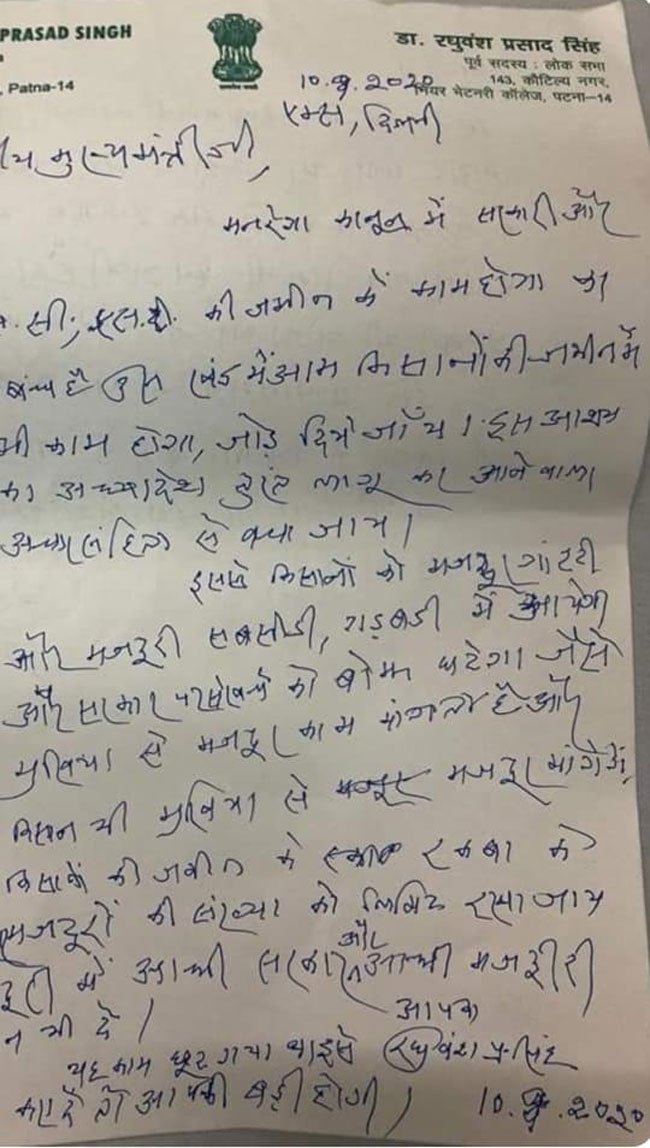 PRASAD SINGH
डा. रघुवंश प्रसाद सिंह
पूर्व सदस्य : लोक सभा
, Patna-14
143, कौटिल्य नगर,
भेटनरी कॉलेज, पटना–14
10. 2020
एम्स, दिल्ली
मुख्यमंत्री जी,
मनरेगा कानून में सरकारी और
सी; एस.टी. की जमीन में काम होगा का
है उस खंड में आम किसानों की जमीन में
भी काम होगा, जोड़ दिया जाँय । इस आशय
का अध्यादेश तुरंत लागू कर आने वाला
आचार संहिता से बचा जाय।
इससे किसानों को मजदूर गारंटी
और मजदूरी सबसीडी, गड़बड़ी में
और सरकार पर को बोझ घटेगा जैसे
मुखिया से मजदूर काम मांगते है और
किसान भी मुखिया से मजदूर मांगेगें,
किसानों की जमीन के रकबा के
मजदूरों की संख्या को लिमिट रखा जाय
में आधी सरकार और आधी मजदूरी
भी दे।
आपका
यह काम छूट गया था इसे रघुवंश प्र. सिंह
कर दें तो आपकी बड़ी होगी। 10. 2020